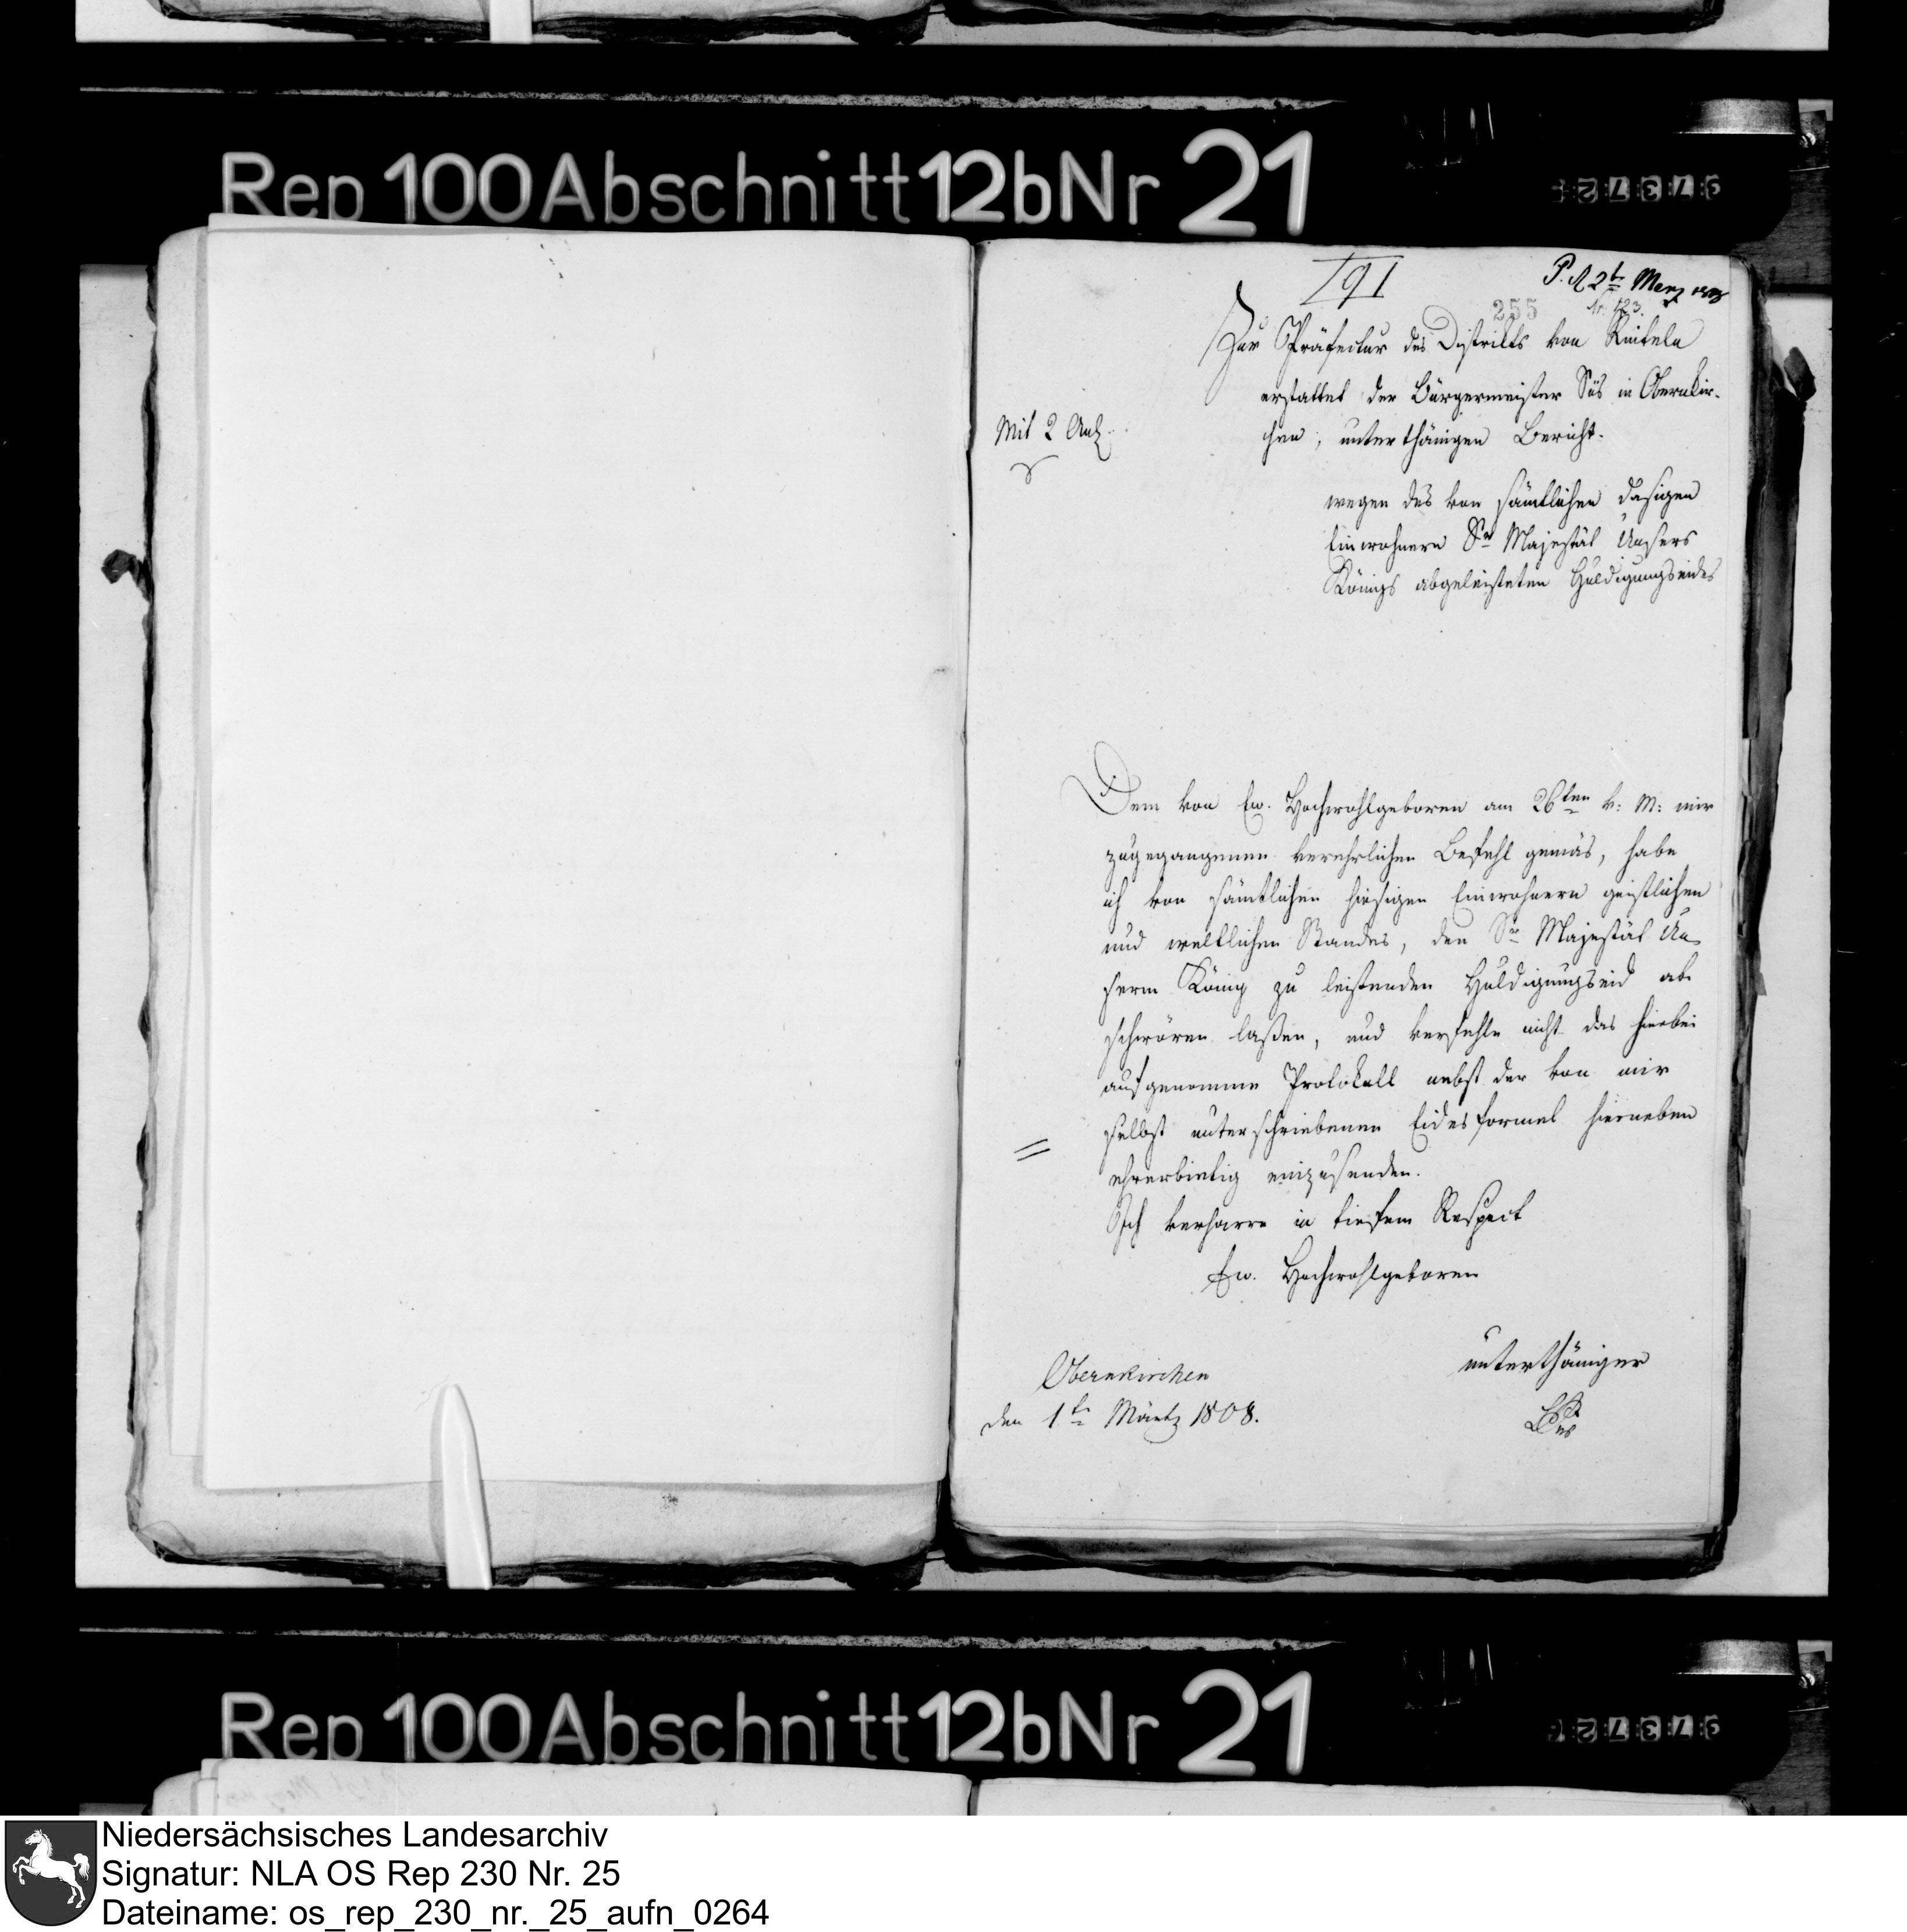 Rep 100 Abschnitt 12b Nr 21
191
P. d 2t Merz 1808
255
Nr. 123.
Zur Präfectur des Distrikts von Rinteln
erstattet der Bürgermeister Süs in Obernkir-
chen, unterthänigen Bericht.
Mit 2 Anl.
wegen des von sämtlichen dasigen
Einwohnern Sr Majestät Unsers
Königs abgeleisteten Huldigungseides
Dem von Ew. Hochwohlgeboren am 26ten v: M: mir
zugegangenen verehrlichen Befehl gemäs, habe
ich von sämtlichen hiesigen Einwohnern geistlichen
und weltlichen Standes, den Sr Majestät Un
serm König zu leistenden Huldigungseid ab
schwören laßen, und verfehle nicht das hierbei
aufgenomme Protokoll nebst der von mir
selbst unterschriebenen Eidesformel hierneben
ehrerbietig einzusenden.
Ich verharre in tiefem Respect
Ew. Hochwohlgeboren
unterthäniger
Süs
Obernkirchen
den 1tn Märtz 1808.
Rep 100 Abschnitt 12b Nr 21
Niedersächsisches Landesarchiv
Signatur: NLA OS Rep 230 Nr. 25
Dateiname: os_rep_230_nr._25_aufn_0264